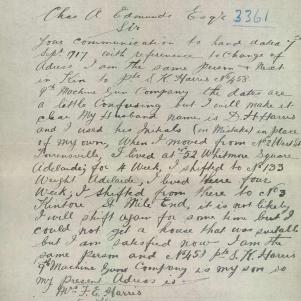 Chas A Edmunds Esqre 3361
Sir
Your communication to hand dated 7th
Sept 1917 with reference to change of
Adress I am the same person & Next
in Kin to pte S K Harris No 458
9th Machine Gun Company the dates are
a little Confusing but I will make it
clear My Husband name is D. H Harris
and I used his Initals (in Mistake) in place
of my own, When I moved from No 2 West St
Torrensville, I lived at 52 Whitmore Square
Adelaide for 4 Week, I shifted to No 133
Wright Adelaide, I lived there four
Week, I shifted from there to No 3
Kintore St Mile End, it is not likely
I will shift again for some time but I
could not get a house that was suitable
but I am satisfied now I am the
same person and No 458 pte S. K Harris
9th Machine Guns Company is my son so
my Present Adress is
Mrs F. E. Harris